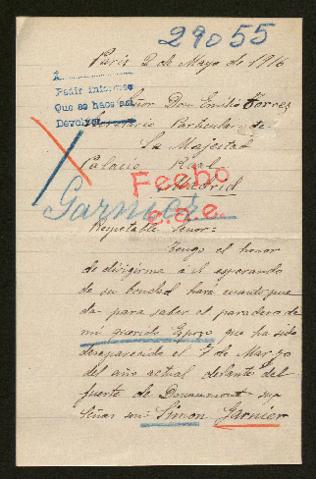 29055
París 2 de Mayo de 1916
A
Pedir informes
Que se haga así
Devolver
Señor Don Emilio Torres
Secretario Particular de
Su Majestad
Palacio Real
Madrid
Fecho
e.a.e.
Garnier
Respetable Señor:
Tengo el honor
de dirigirme a U esperando
de su bondad hará cuanto pue
da para saber el paradero de
mi querido Espozo que ha sido
desaparecido el 7 de Marzo
del año actual delante del
fuerte de Douaumont sus
señas son: Simon Garnier